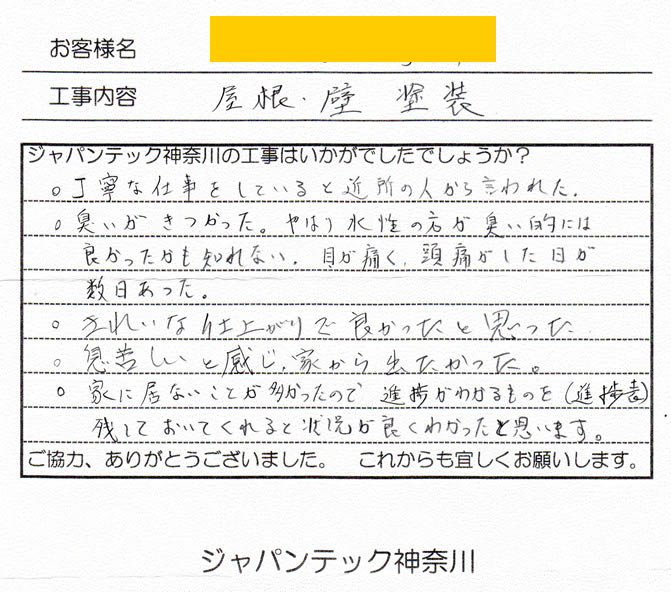 お客様名
工事内容 屋根・壁 塗装
ジャパンテック神奈川の工事はいかがでしたでしょうか？
○丁寧な仕事をしていると近所の人から言われた．
○臭いがきつかった。やはり水性の方が臭い的には
良かったかも知れない．目が痛く、頭痛がした日が
数日あった。
○きれいな仕上がりで良かったと思った
○息苦しいと感じ、家から出たかった。
○家に居ないことが多かったので 進捗がわかるものを（進捗表）
残しておいてくれると状況が良くわかったと思います。
ご協力、ありがとうございました。 これからも宜しくお願いします。
ジャパンテック神奈川